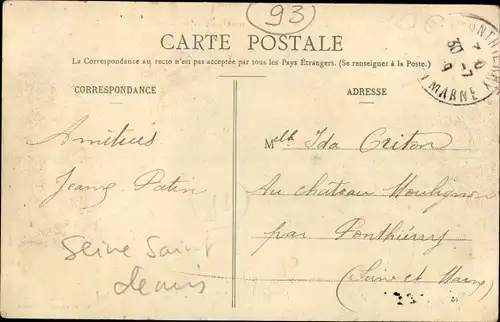 93
CARTE POSTALE
La Correspondance au recto n'est pas acceptée par tous les Pays Étrangers. (Se renseigner à la Poste.)
CORRESPONDANCE
ADRESSE
Amitiés
Jeanne Patin
Seine Saint
denis
Melle Ida Criton
Au château Moulignon
par Ponthierry
(Seine et Marne)
MARNE